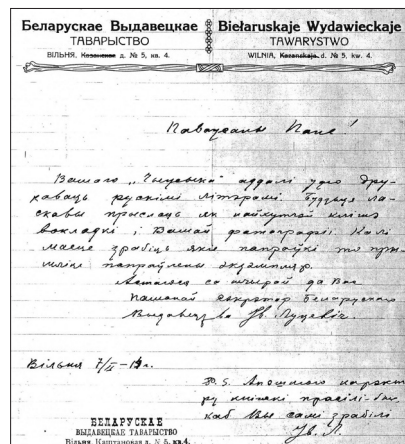 Беларускае Выдавецкае
ТАВАРЫСТВО
ВІЛЬНЯ, Казанская д. № 5, кв. 4.
Biełaruskaje Wydawieckaje
TAWARYSTWO
WILNIA, Kazanskaja d. № 5, kw. 4.
Паважаны Пане!
Вашого „ аддалі ўдто дру-
каваць рускімі літэрамі. Будзьце ла-
скавы прыслаць як найхутчэй клішэ
вокладкі і Вашай фатографіі. Калі
маеце зрабіць якіе папраўкі то пры-
шліце папраўлены экземпляр.
Астаюся со шчырай до Вас
пашанай сэкрэтар Беларускаго
Выдавецтва Ів. Луцевіч.
Вільня
P. S. Апошнюю карэкт
ру кніжкі прасілі-бы,
каб Вы самі зрабілі
Ів. Л.
БЕЛАРУСКАЕ
ВЫДАВЕЦКАЕ ТАВАРЫСТВО
Вільня, Каштановая д. № 5, кв.4.